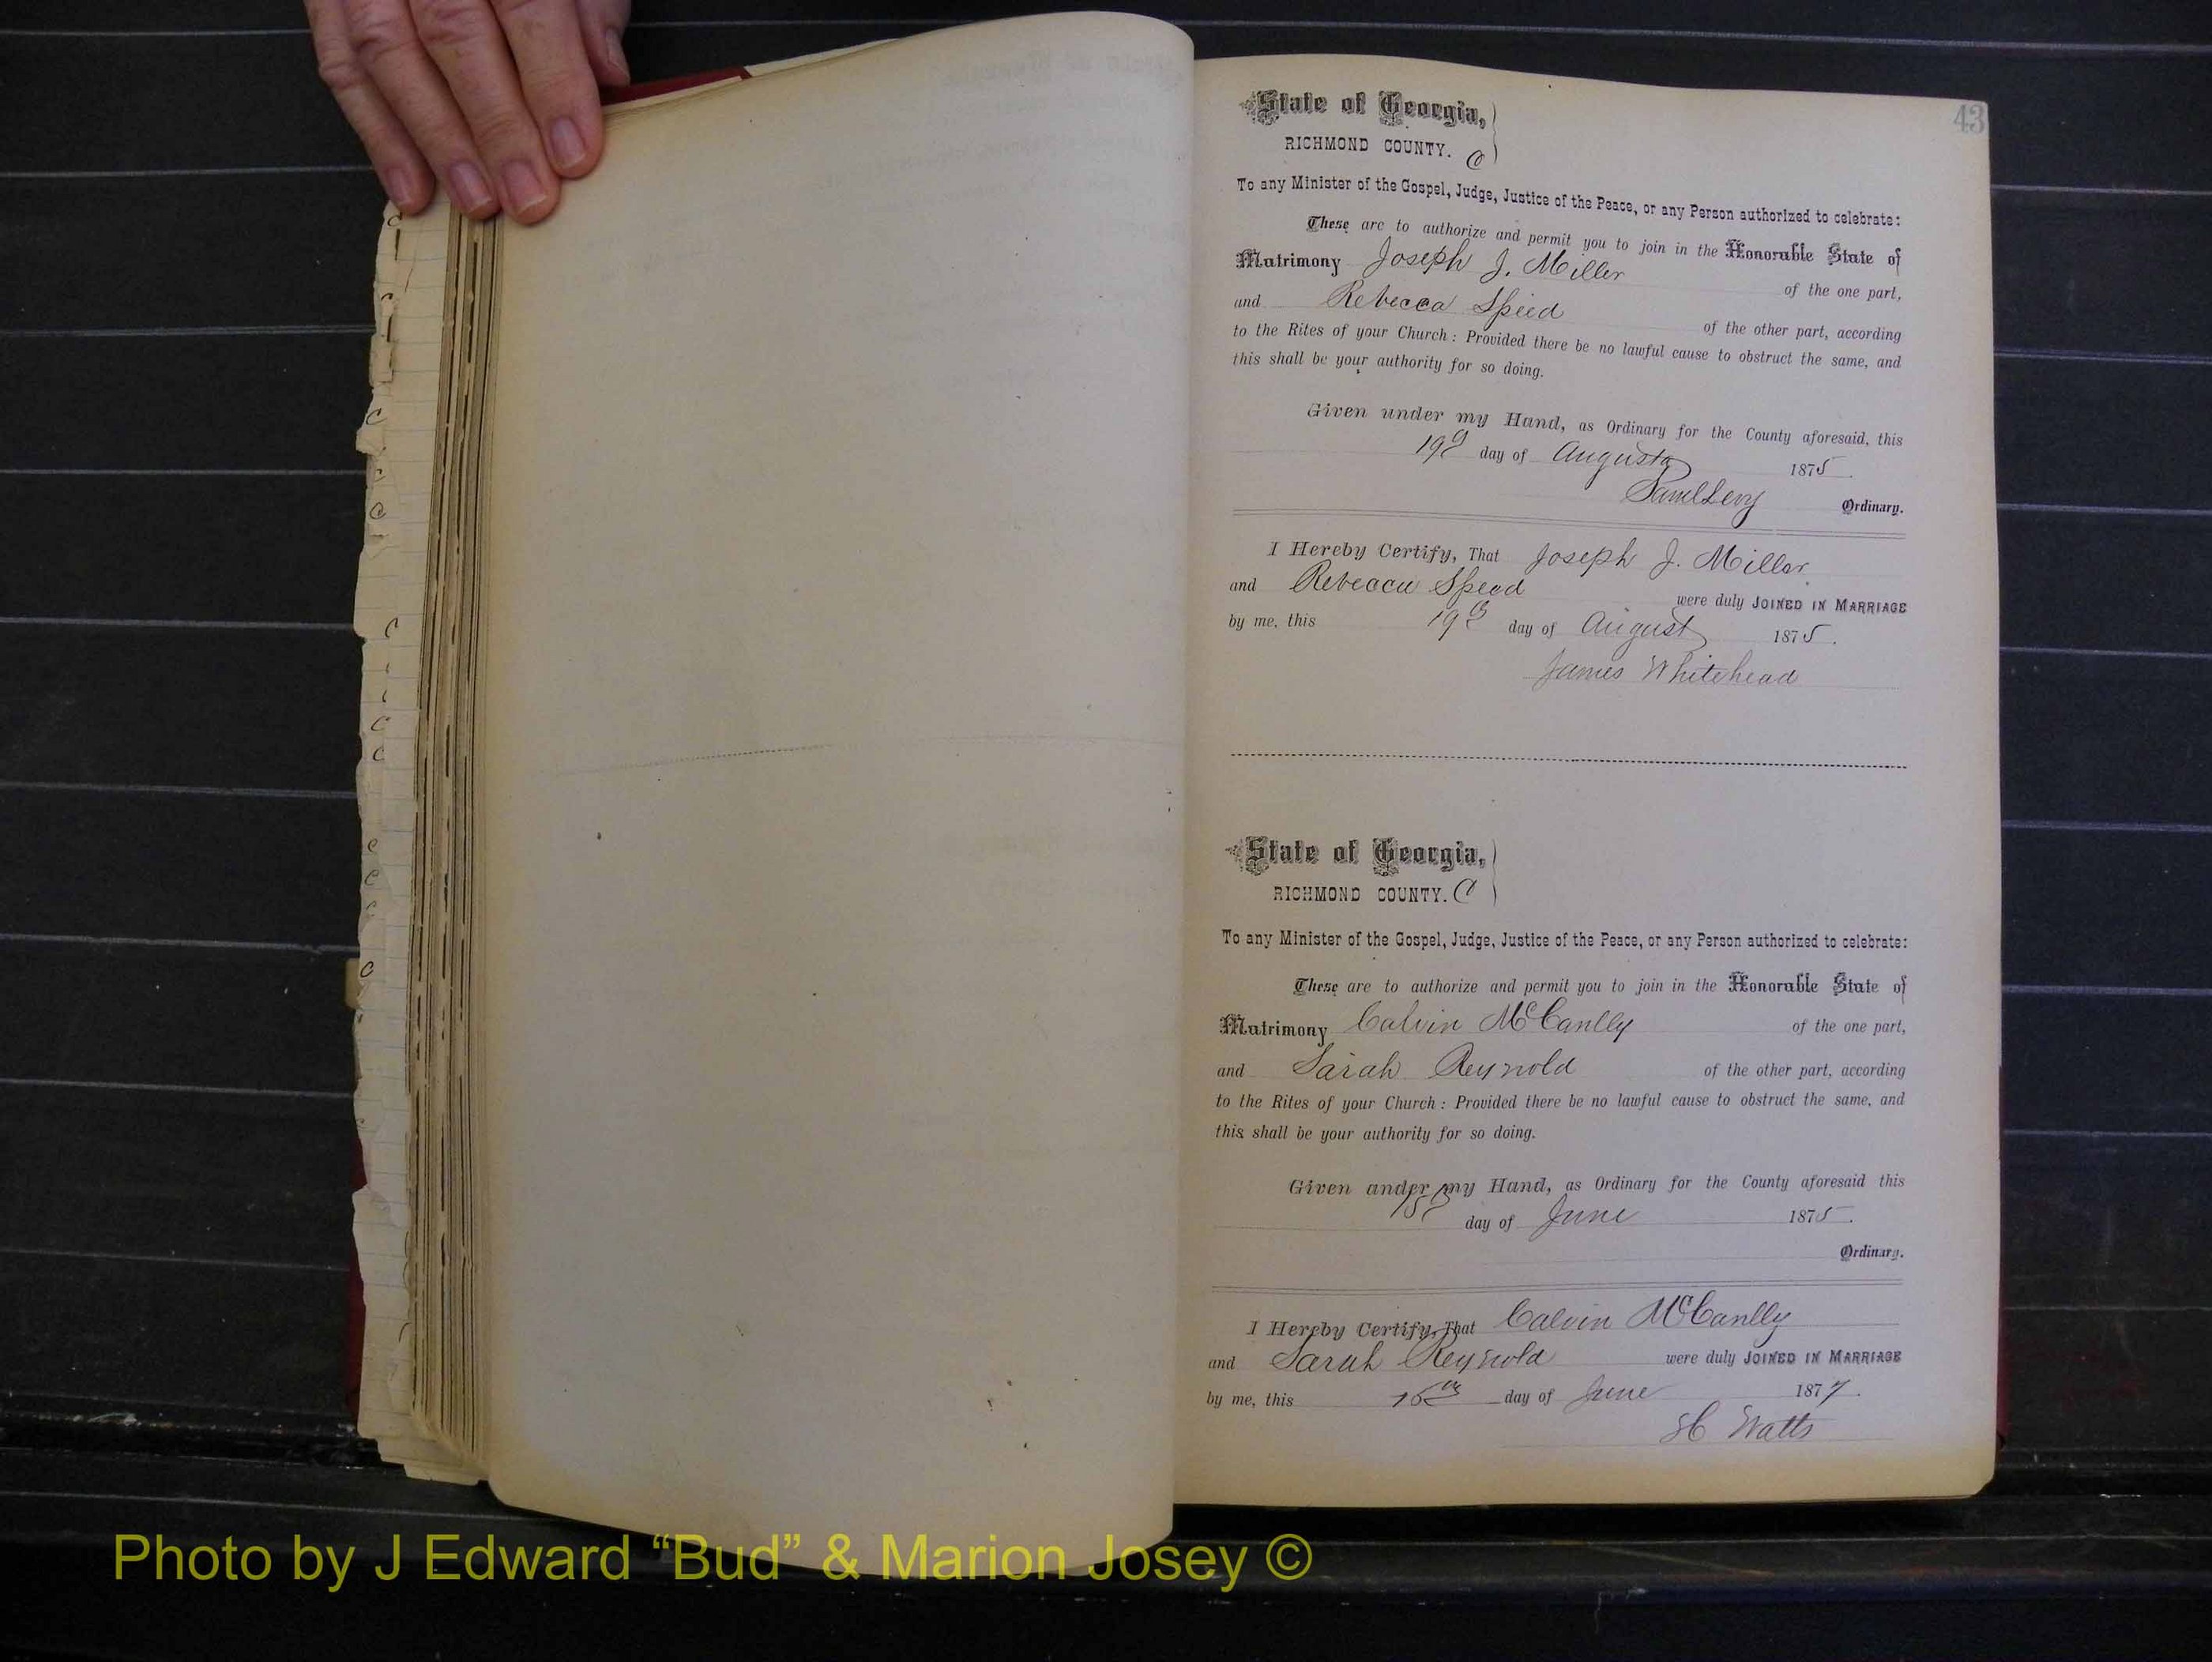 43
State of Georgia,
RICHMOND COUNTY. C
To any Minister of the Gospel, Judge, Justice of the Peace, or any Person authorized to celebrate:
These are to authorize and permit you to join in the Honorable State of
Matrimony Joseph J. Miller of the one part,
and Rebecca Speed of the other part, according
to the Rites of your Church: Provided there be no lawful cause to obstruct the same, and
this shall be your authority for so doing.
Given under my Hand, as Ordinary for the County aforesaid, this
19th day of August 1875.
Saml Levy Ordinary.
I Hereby Certify, That Joseph J. Miller
and Rebecca Speed were duly JOINED IN MARRIAGE
by me, this 19th day of August 1875.
James Whitehead
State of Georgia,
RICHMOND COUNTY. C
To any Minister of the Gospel, Judge, Justice of the Peace, or any Person authorized to celebrate:
These are to authorize and permit you to join in the Honorable State of
Matrimony Calvin McCanlly of the one part,
and Sarah Reynold of the other part, according
to the Rites of your Church: Provided there be no lawful cause to obstruct the same, and
this shall be your authority for so doing.
Given under my Hand, as Ordinary for the County aforesaid this
15th day of June 1875.
Ordinary.
I Hereby Certify, That Calvin McCanlly
and Sarah Reynold were duly JOINED IN MARRIAGE
by me, this 16th day of June 1877.
Watts
Photo by J Edward “Bud” & Marion Josey ©